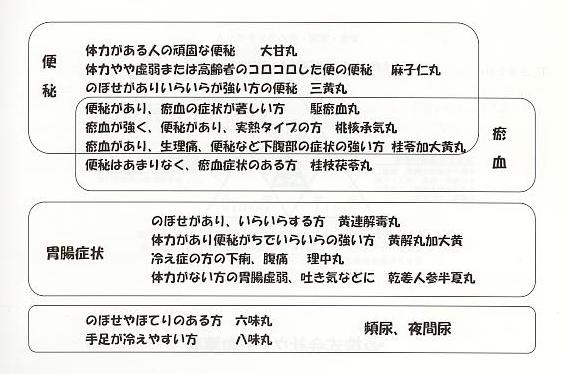 便秘
体力がある人の頑固な便秘　大甘丸
体力やや虚弱または高齢者のコロコロした便の便秘　麻子仁丸
のぼせがありいらいらが強い方の便秘　三黄丸
便秘があり、瘀血の症状が著しい方　駆瘀血丸
瘀血が強く、便秘があり、実熱タイプの方　桃核承気丸
瘀血があり、生理痛、便秘など下腹部の症状の強い方　桂苓加大黄丸
便秘はあまりなく、瘀血症状のある方　桂枝茯苓丸
瘀血
胃腸症状
のぼせがあり、いらいらする方　黄連解毒丸
体力があり便秘がちでいらいらの強い方　黄解丸加大黄
冷え症の方の下痢、腹痛　理中丸
体力がない方の胃腸虚弱、吐き気などに　乾姜人参半夏丸
のぼせやほてりのある方　六味丸
手足が冷えやすい方　八味丸
頻尿、夜間尿